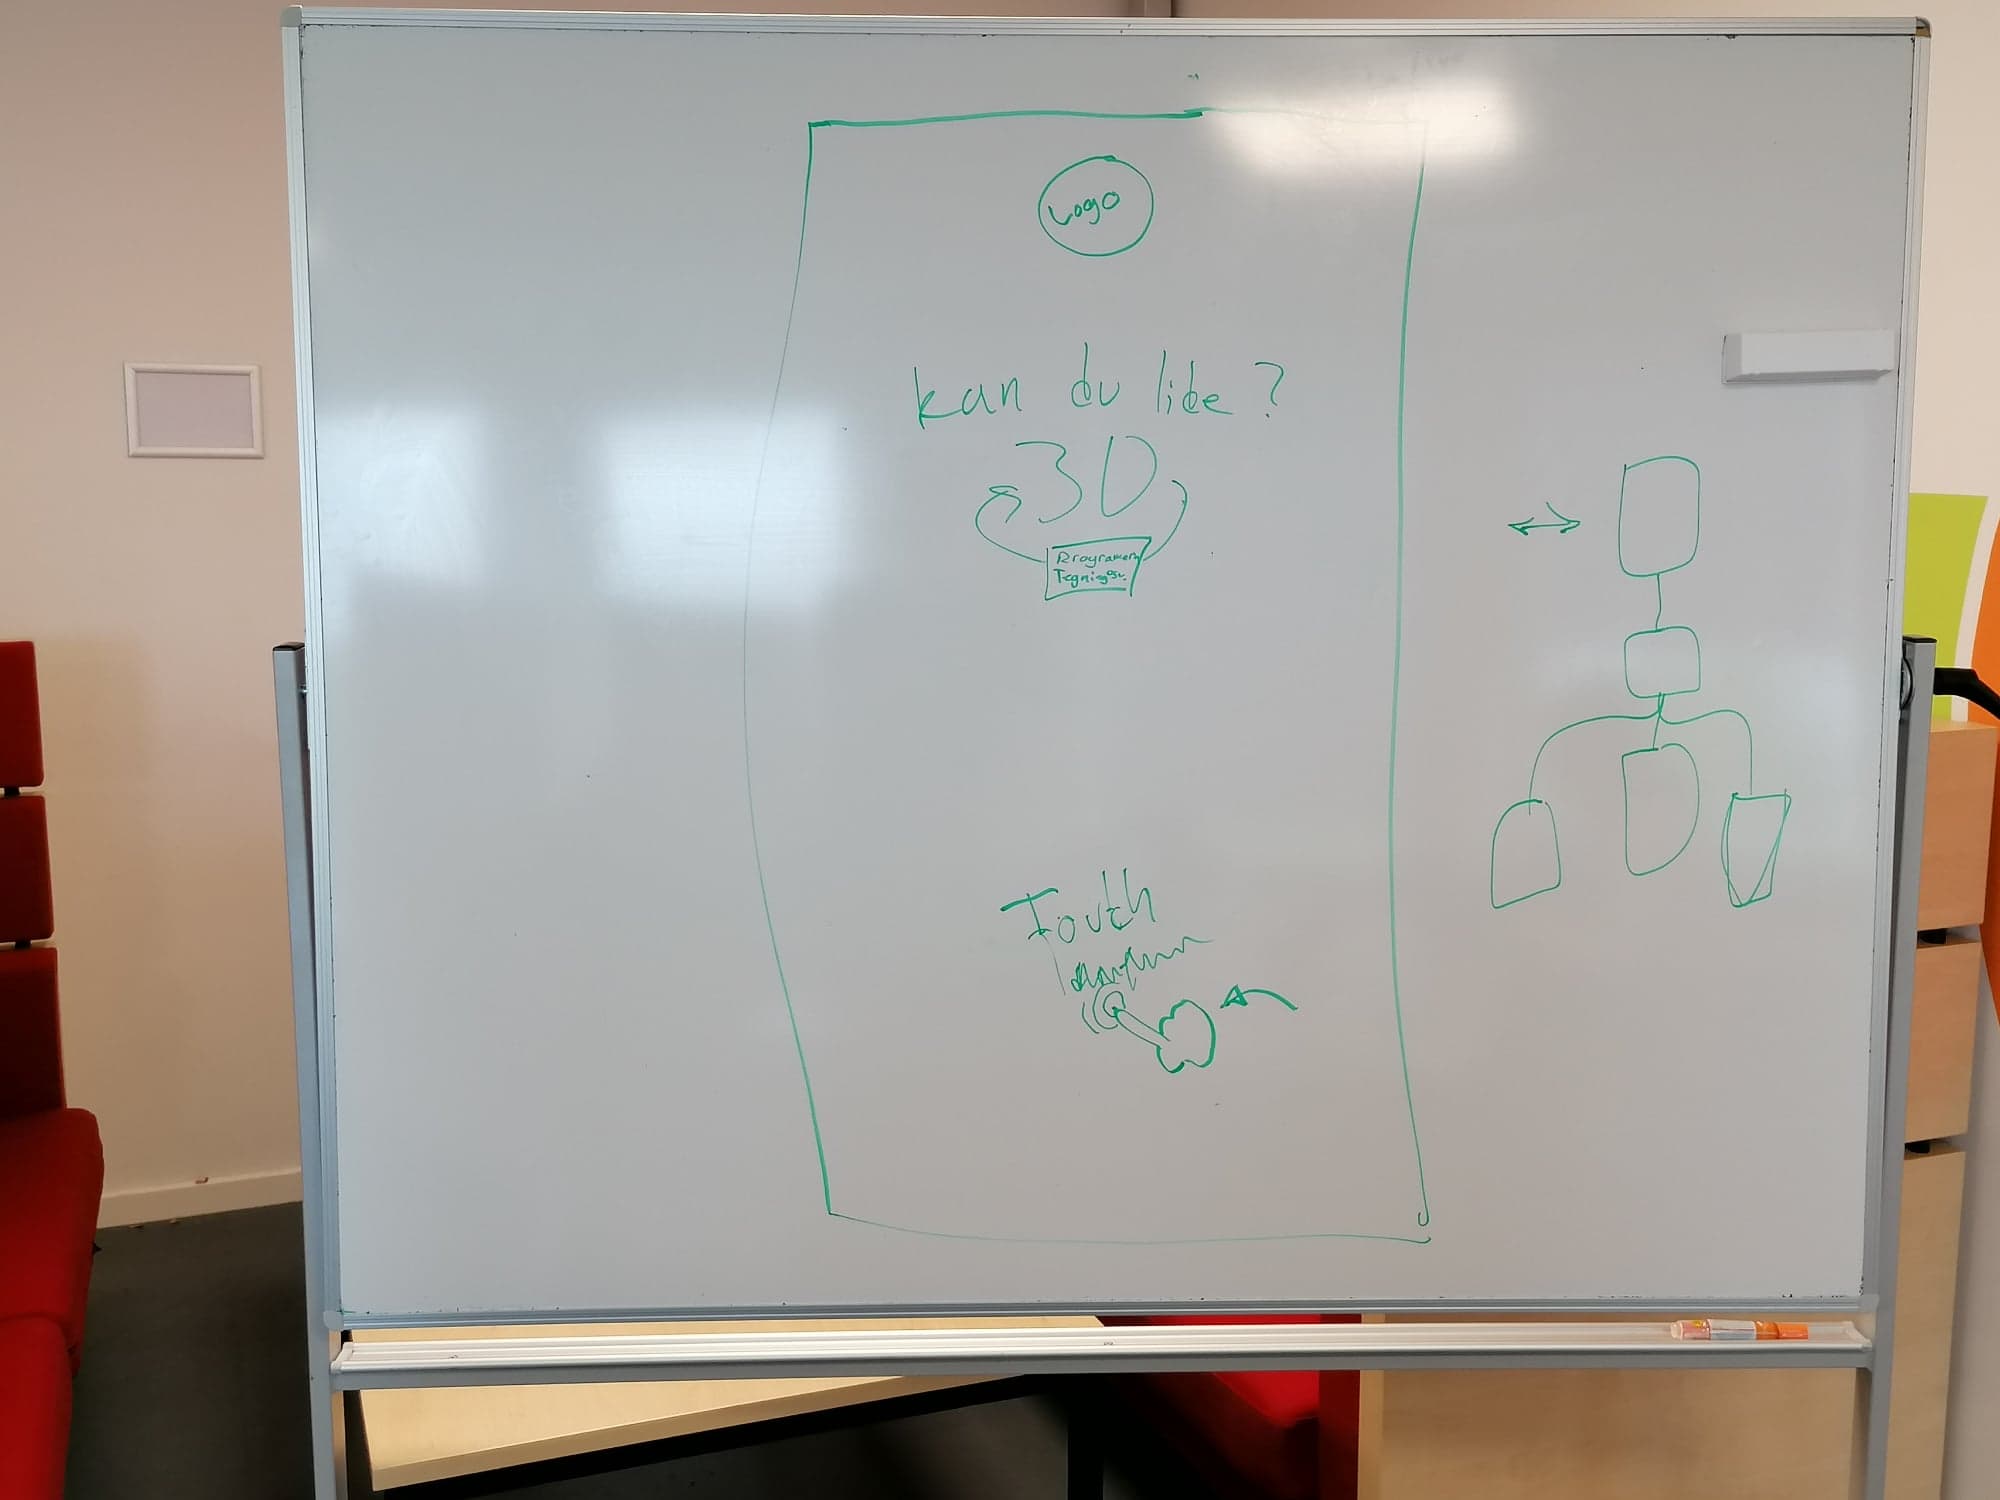 Logo
kan du lide?
3D
Programering
Tegning osv.
Touch